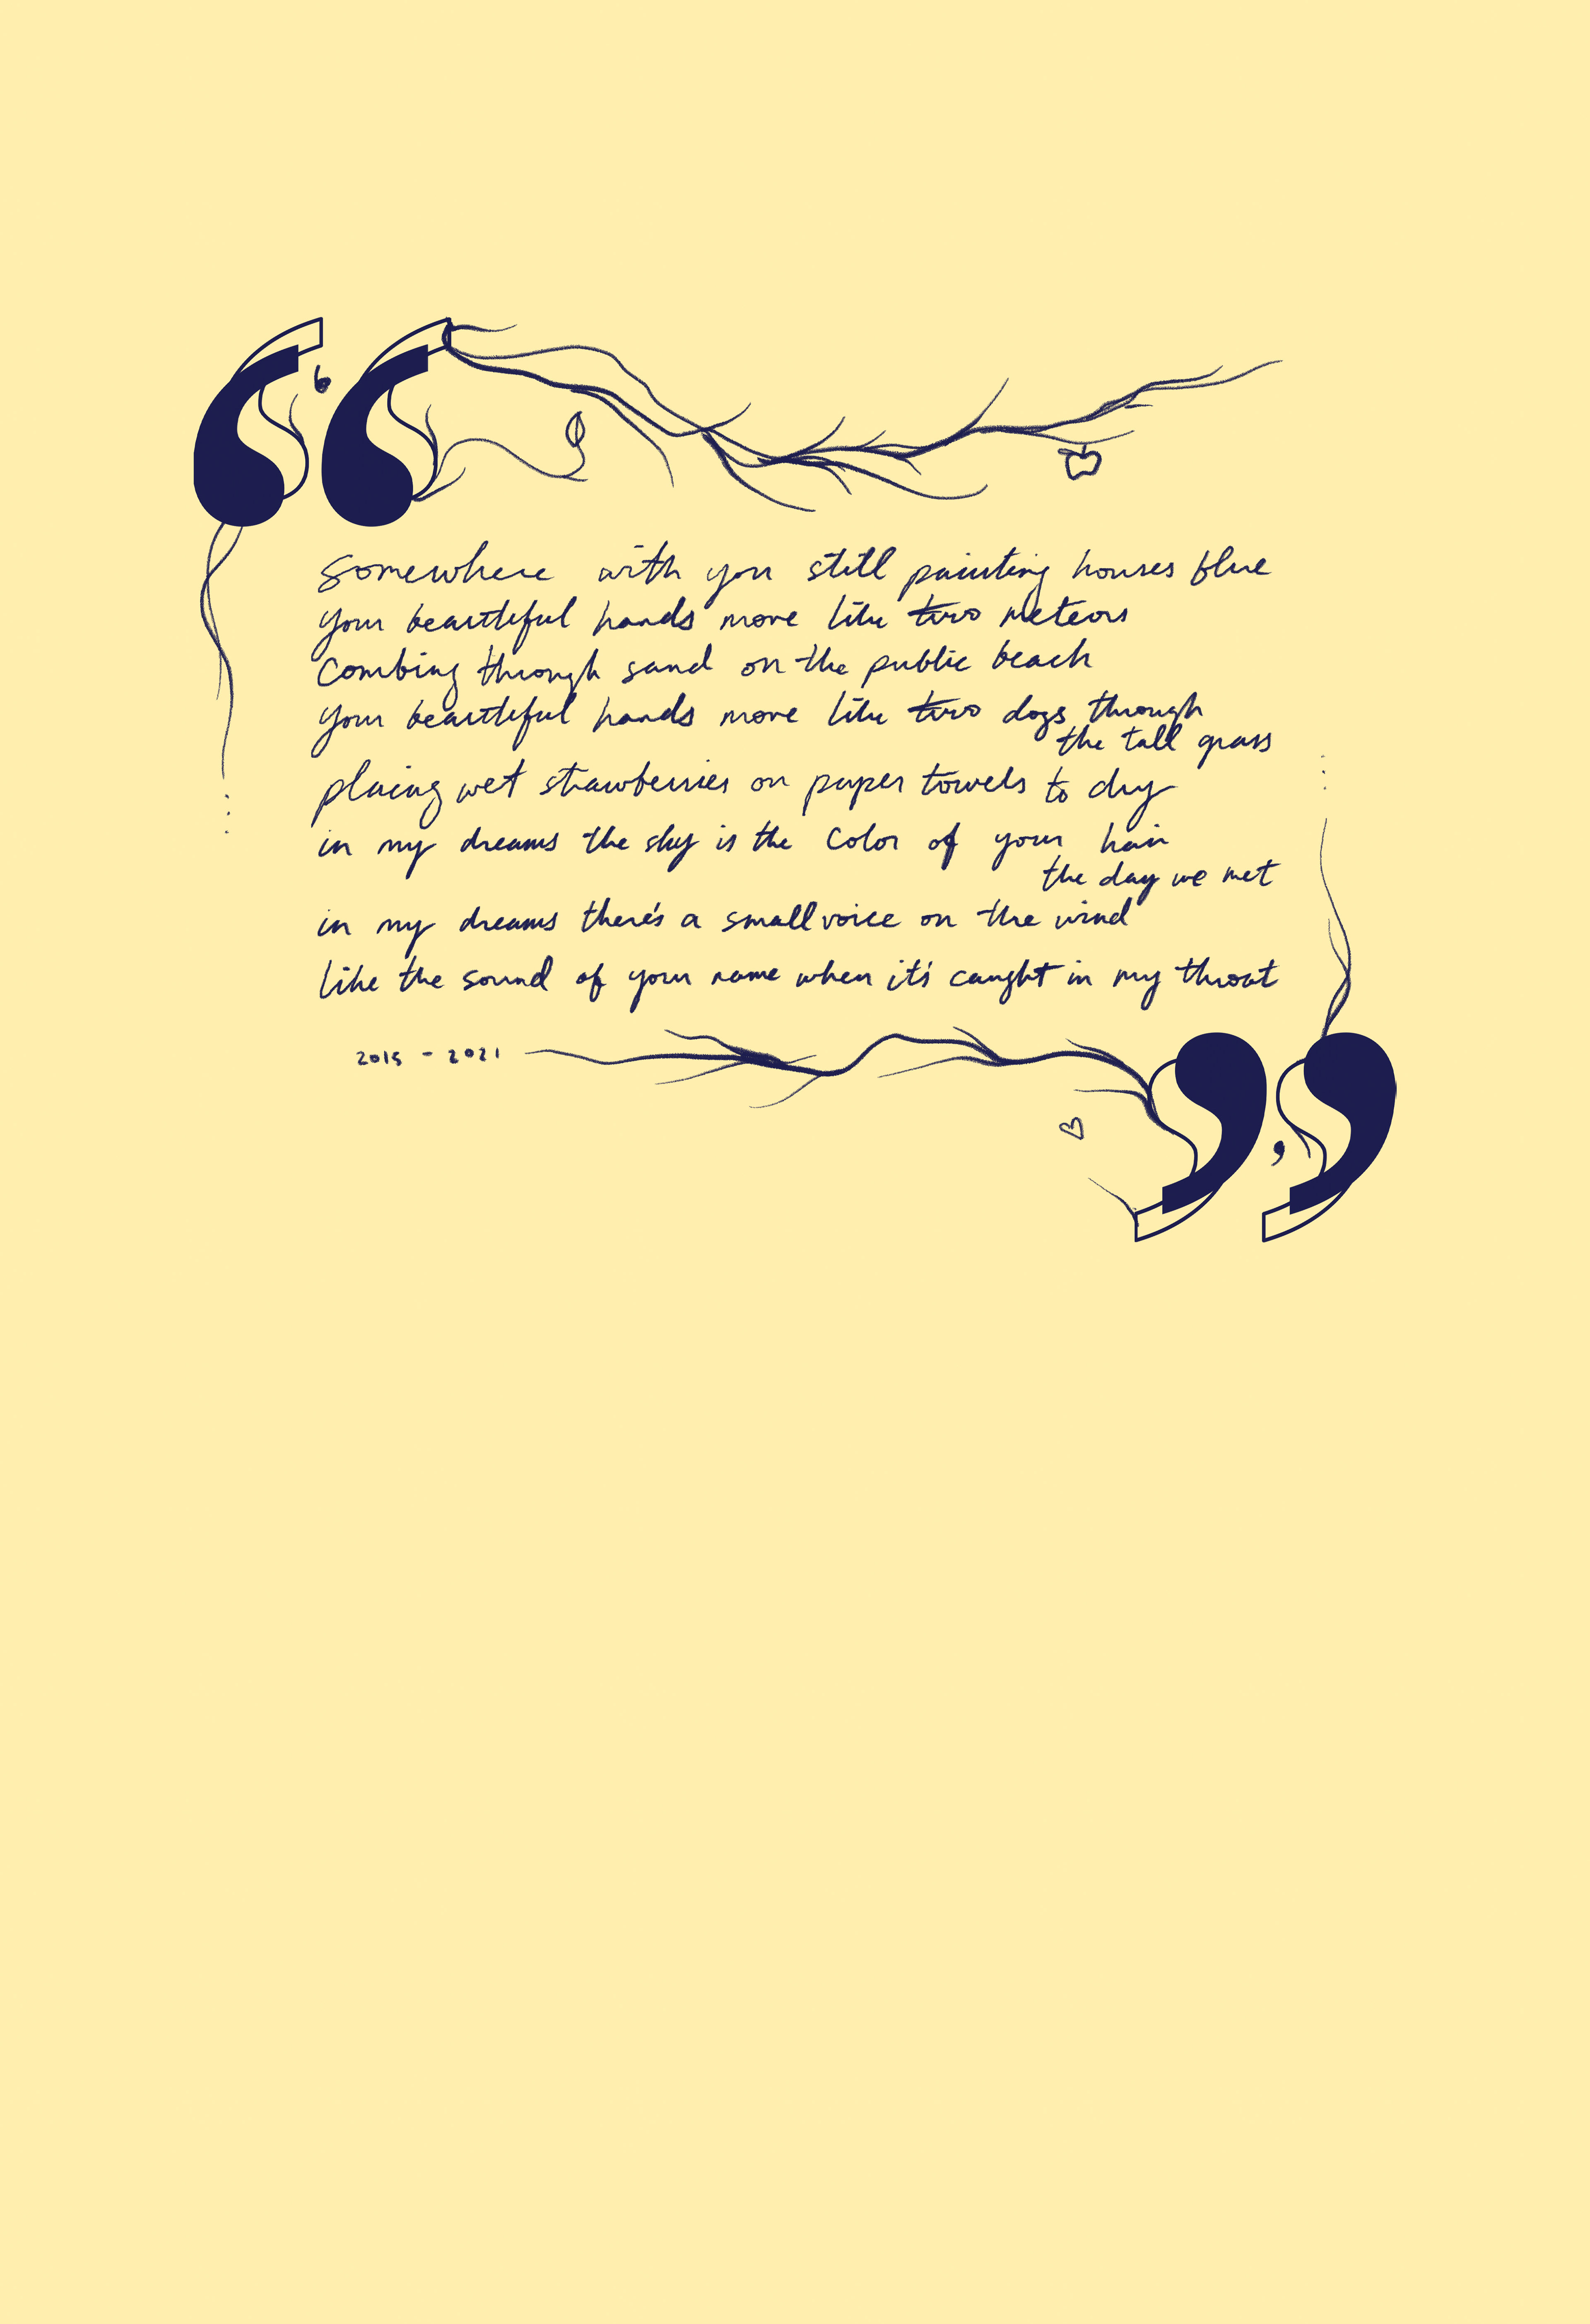 somewhere with you still painting houses blue
your beautiful hands move like two meteors
combing through sand on the public beach
your beautiful hands move like two dogs through
the tall grass
placing wet strawberries on paper towels to dry
in my dreams the sky is the color of your hair
the day we met
in my dreams there's a small voice on the wind
like the sound of your name when it's caught in my throat
2015 - 2021